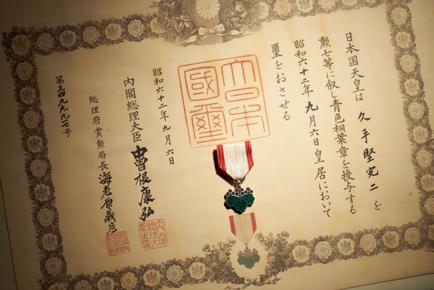 日本国天皇は久手堅宪二を
勲七等に叙し青色桐葉章を授与する
昭和六十二年九月六日皇居において
璽をおさせる
大日本
國璽
昭和六十二年九月六日
内閣総理大臣 曽根康弘
総理府賞勲局長 海老原義彦
第三四九九七号